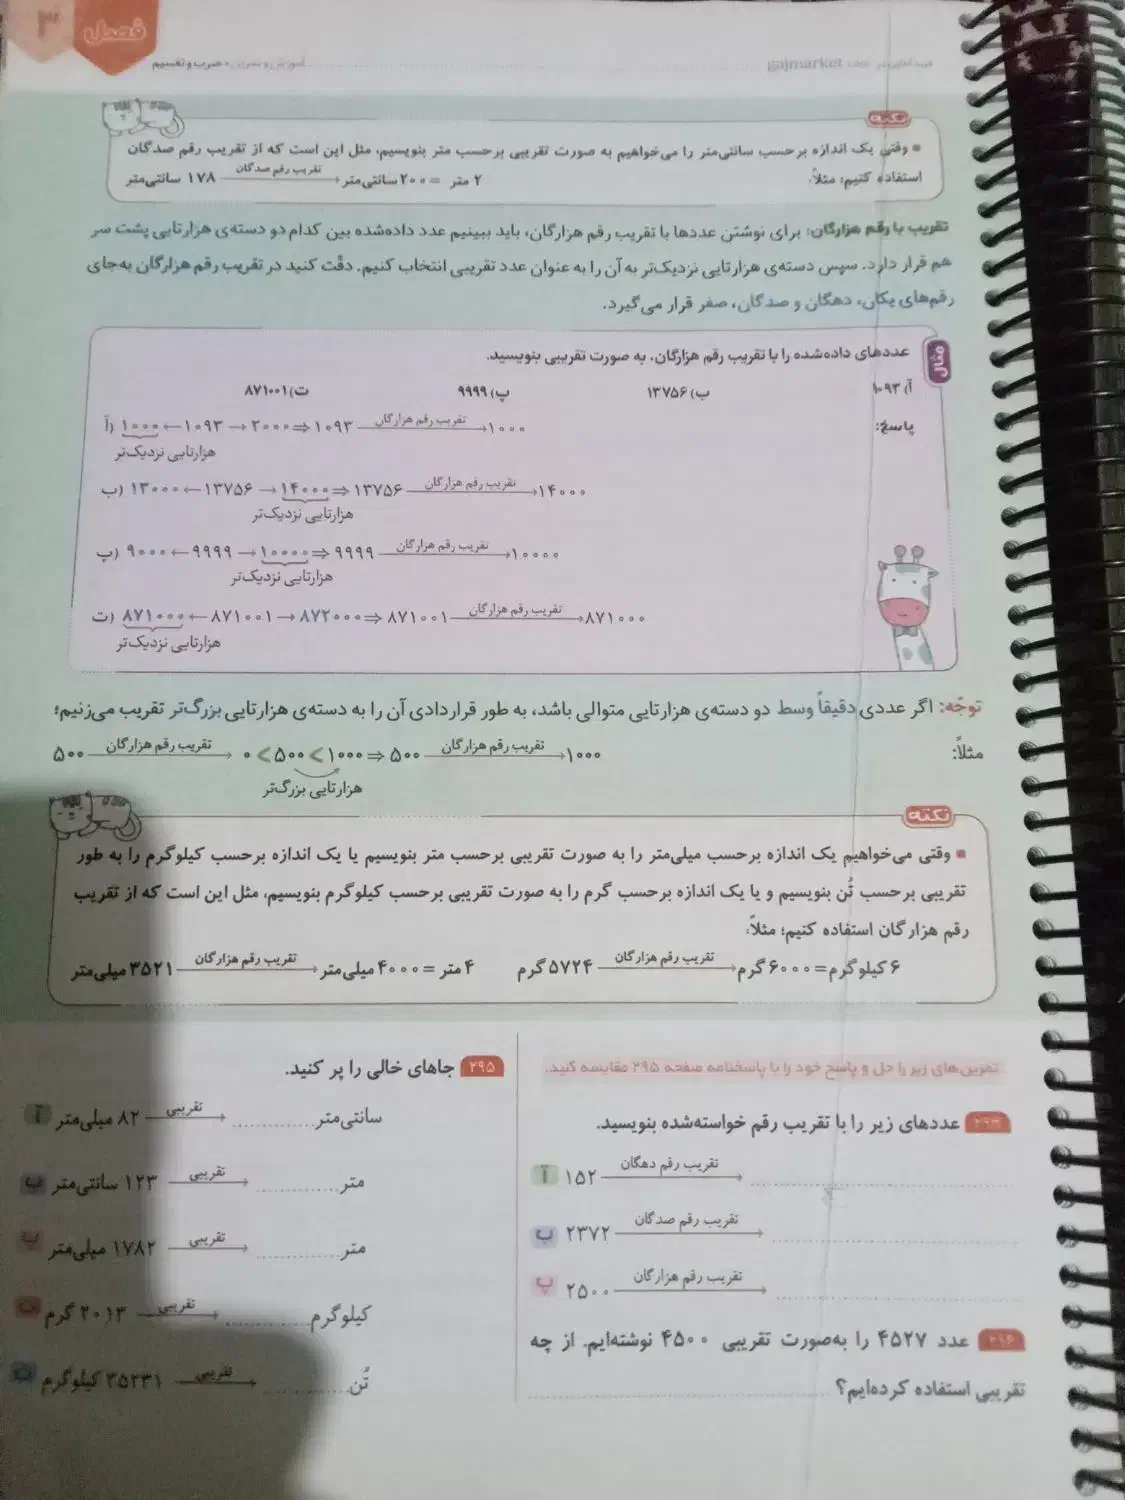 فصل ۳
آموزش و تمرین • ضرب و تقسیم
gajmarket
نکته
■ وقتی یک اندازه برحسب سانتی‌متر را می‌خواهیم به صورت تقریبی برحسب متر بنویسیم، مثل این است که از تقریب رقم صدگان
استفاده کنیم؛ مثلاً:
۱۷۸ سانتی‌متر ⟶ تقریب رقم صدگان ۲۰۰ سانتی‌متر = ۲ متر
تقریب با رقم هزارگان: برای نوشتن عددها با تقریب رقم هزارگان، باید ببینیم عدد داده‌شده بین کدام دو دسته‌ی هزارتایی پشت سر
هم قرار دارد. سپس دسته‌ی هزارتایی نزدیک‌تر به آن را به عنوان عدد تقریبی انتخاب کنیم. دقّت کنید در تقریب رقم هزارگان به‌جای
رقم‌های یکان، دهگان و صدگان، صفر قرار می‌گیرد.
مثال
عددهای داده‌شده را با تقریب رقم هزارگان، به صورت تقریبی بنویسید.
آ) ۱۰۹۳ ب) ۱۳۷۵۶ پ) ۹۹۹۹ ت) ۸۷۱۰۰۱
پاسخ:
آ) ۱۰۰۰ ← ۱۰۹۳ → ۲۰۰۰ ⇒ ۱۰۹۳ ⟶ تقریب رقم هزارگان ۱۰۰۰
هزارتایی نزدیک‌تر
ب) ۱۳۰۰۰ ← ۱۳۷۵۶ → ۱۴۰۰۰ ⇒ ۱۳۷۵۶ ⟶ تقریب رقم هزارگان ۱۴۰۰۰
هزارتایی نزدیک‌تر
پ) ۹۰۰۰ ← ۹۹۹۹ → ۱۰۰۰۰ ⇒ ۹۹۹۹ ⟶ تقریب رقم هزارگان ۱۰۰۰۰
هزارتایی نزدیک‌تر
ت) ۸۷۱۰۰۰ ← ۸۷۱۰۰۱ → ۸۷۲۰۰۰ ⇒ ۸۷۱۰۰۱ ⟶ تقریب رقم هزارگان ۸۷۱۰۰۰
هزارتایی نزدیک‌تر
توجّه: اگر عددی دقیقاً وسط دو دسته‌ی هزارتایی متوالی باشد، به طور قراردادی آن را به دسته‌ی هزارتایی بزرگ‌تر تقریب می‌زنیم؛
مثلاً:
۵۰۰ ⟶ تقریب رقم هزارگان ۰ < ۵۰۰ < ۱۰۰۰ ⇒ ۵۰۰ ⟶ تقریب رقم هزارگان ۱۰۰۰
هزارتایی بزرگ‌تر
نکته
■ وقتی می‌خواهیم یک اندازه برحسب میلی‌متر را به صورت تقریبی برحسب متر بنویسیم یا یک اندازه برحسب کیلوگرم را به طور
تقریبی برحسب تُن بنویسیم و یا یک اندازه برحسب گرم را به صورت تقریبی برحسب کیلوگرم بنویسیم، مثل این است که از تقریب
رقم هزارگان استفاده کنیم؛ مثلاً:
۵۷۲۴ گرم ⟶ تقریب رقم هزارگان ۶۰۰۰ گرم = ۶ کیلوگرم
۳۵۲۱ میلی‌متر ⟶ تقریب رقم هزارگان ۴۰۰۰ میلی‌متر = ۴ متر
تمرین‌های زیر را حل و پاسخ خود را با پاسخنامه صفحه ۲۹۵ مقایسه کنید.
۲۹۳ عددهای زیر را با تقریب رقم خواسته‌شده بنویسید.
آ ۱۵۲ ⟶ تقریب رقم دهگان ..........
ب ۲۳۷۲ ⟶ تقریب رقم صدگان ..........
پ ۲۵۰۰ ⟶ تقریب رقم هزارگان ..........
۲۹۴ عدد ۴۵۲۷ را به‌صورت تقریبی ۴۵۰۰ نوشته‌ایم. از چه
تقریبی استفاده کرده‌ایم؟ ..........
۲۹۵ جاهای خالی را پر کنید.
آ ۸۲ میلی‌متر ⟶ تقریبی .......... سانتی‌متر
ب ۱۲۳ سانتی‌متر ⟶ تقریبی .......... متر
پ ۱۷۸۲ میلی‌متر ⟶ تقریبی .......... متر
ت ۲۰۱۳ گرم ⟶ تقریبی .......... کیلوگرم
ث ۳۵۲۳۱ کیلوگرم ⟶ تقریبی .......... تُن